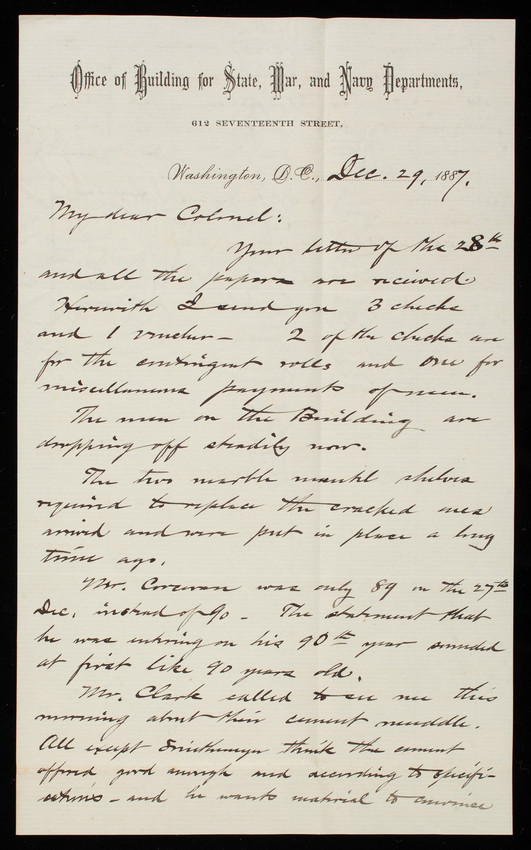 Office of Building for State, War, and Navy Departments,
612 SEVENTEENTH STREET,
Washington, D.C., Dec. 29, 1887.
My dear Colonel:
Your letter of the 28th
and all the papers are received.
Herewith I send you 3 checks
and 1 voucher - 2 of the checks are
for the contingent rolls and one for
miscellaneous payments of men.
The men on the Building are
dropping off steadily now.
The two marble mantel shelves
required to replace the cracked ones
arrived and were put in place a long
time ago.
Mr. Corcoran was only 89 on the 27th
Dec. instead of 90 - The statement that
he was entering on his 90th year sounded
at first like 90 years old.
Mr. Clark called to see me this
morning about their cement muddle.
All except think the cement
offered good enough and according to specifi-
cations - and he wants material to convince